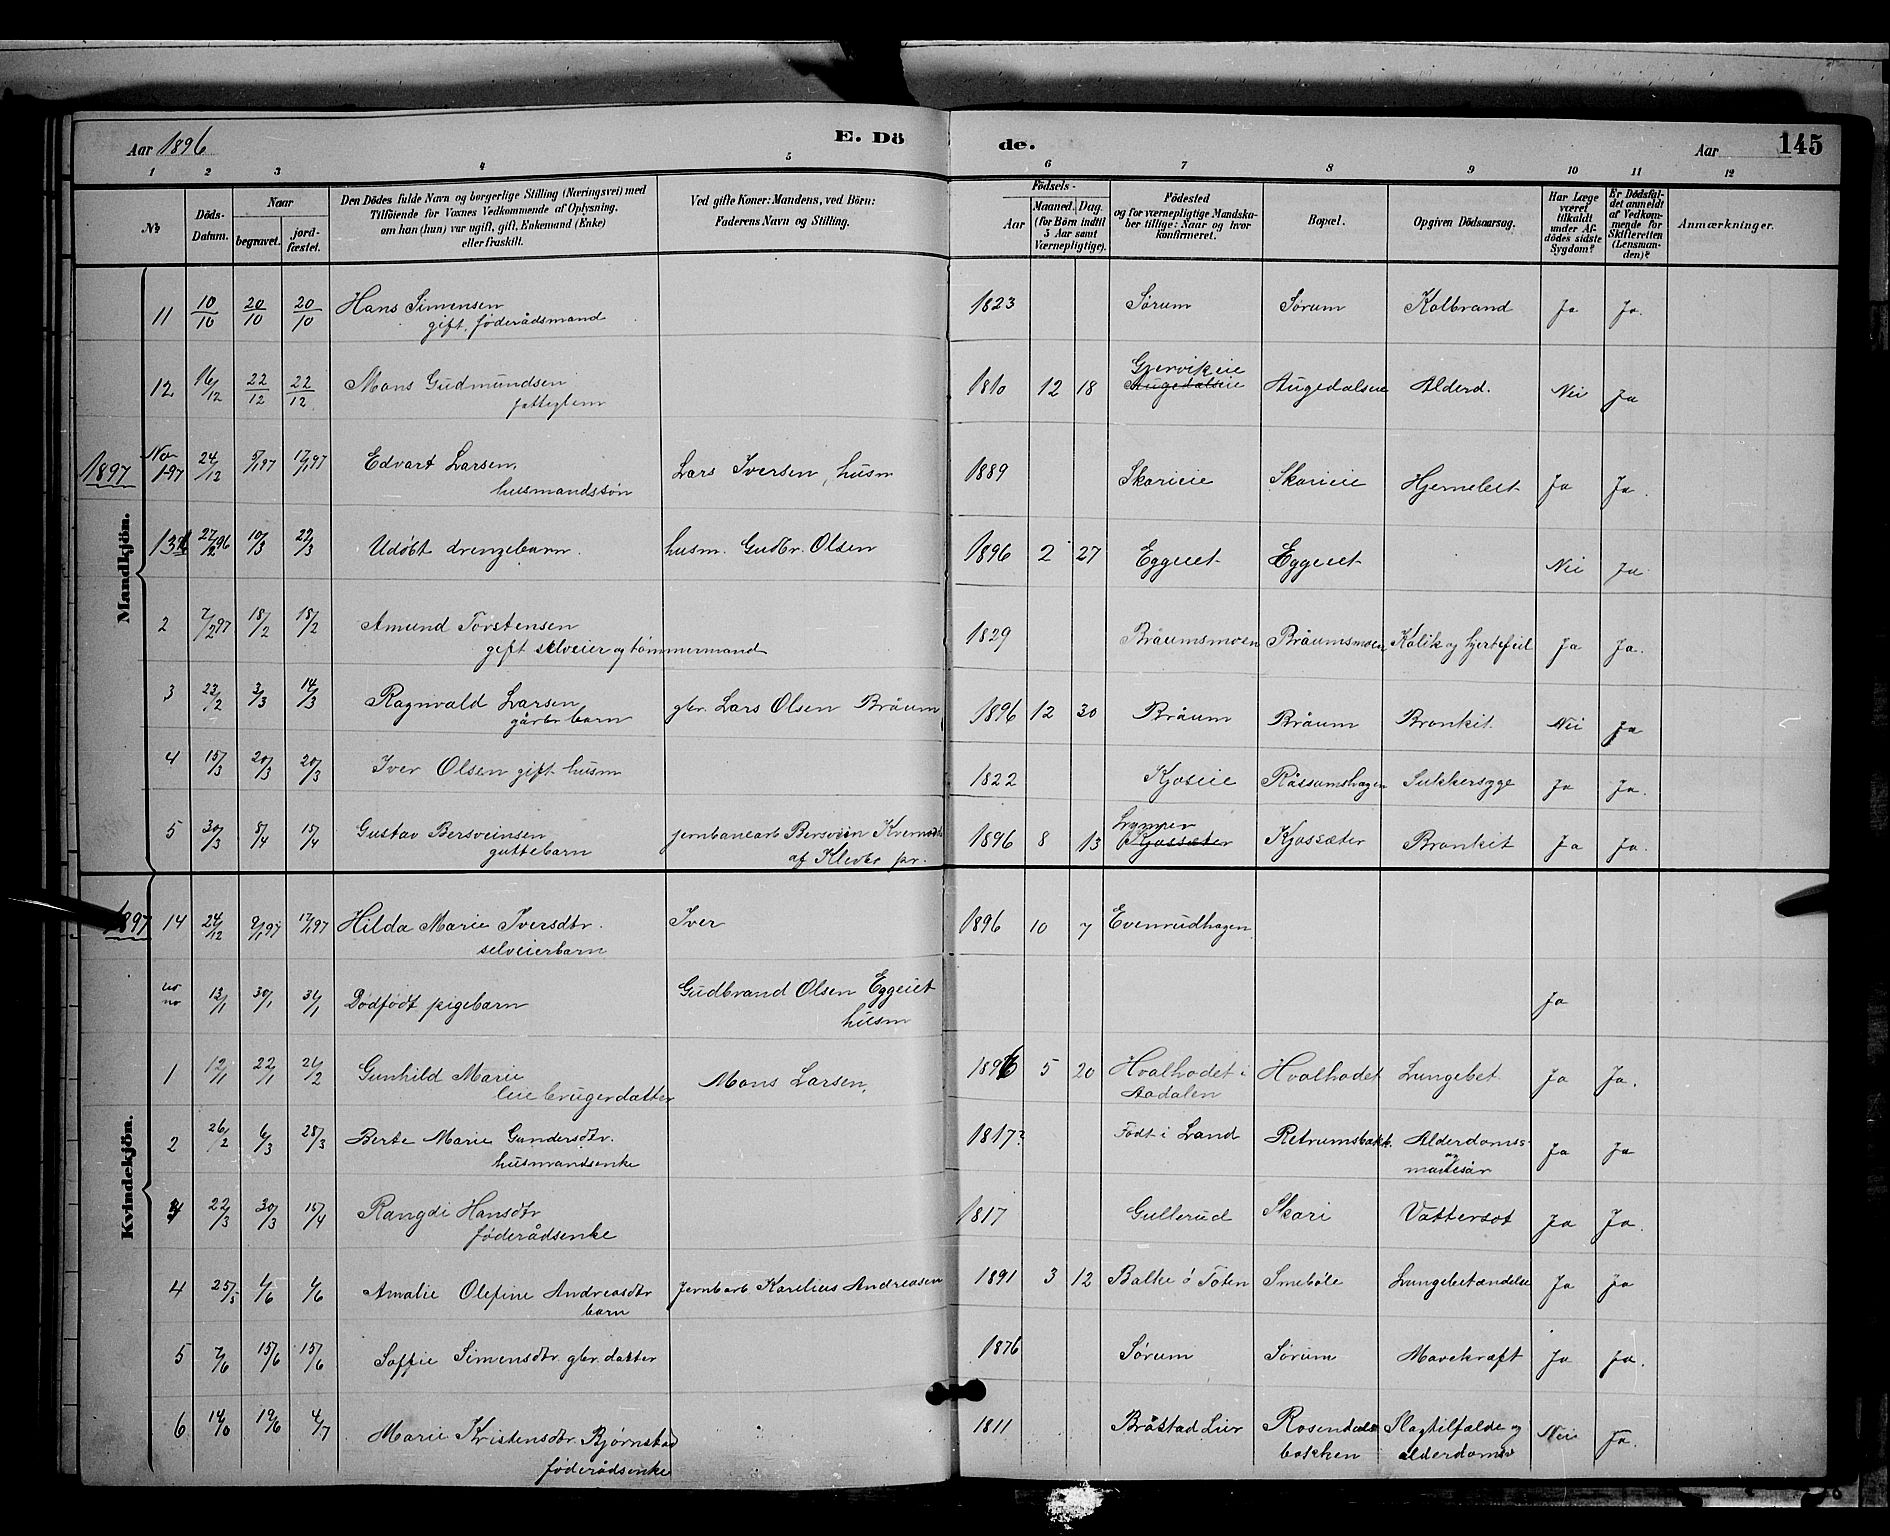 Aar 1896 E. Dö de. Aar 145
1 2 3 4 5 6 7 8 9 10 11 12
№ Döds-Datum. Naar begravet. jord-fæstet. Den Dödes fulde Navn og borgerlige Stilling (Næringsvei) med Tilföiende for Voxnes Vedkommende af Oplysning, om han (hun) var ugift, gift, Enkemand (Enke) eller fraskilt. Ved gifte Koner: Mandens, ved Börn: Faderens Navn og Stilling. Födsels- Aar Maaned. Dag. (for Börn indtil 5 Aar samt Værnepligtige). Födested og for værnepligtige Mandska-ber tillige: Naar og hvor konfirmeret. Bopæl. Opgiven Dödsaarsag. Har Læge været tilkaldt under Af-dödes sidste Sygdom? Er Dödsfal-det anmeldt af Vedkom-mende for Skifteretten (Lensman-den)? Anmærkninger.
Mandkjön.
11 10/10 20/10 20/10 Hans Simensen 1823 Sørum Sørum Kolbrand Ja Ja.
gift, føderådsmand
12 16/12 22/12 22/12 Mons Gudmundsen 1810 12 18 Gjervikeie Augedalseie Augedalseie Alderd. Nei Ja
fattiglem
1897 No 1 97 24/12 5/1 97 17/1 97 Edvart Larsen, Lars Iversen, husm 1889 Skarieie Skarieie Hjernebet Ja Ja.
husmandssøn
13 27/12 96 10/3 22/3 Udøbt drengebarn. husm. Gudbr. Olsen 1896 2 27 Eggeiet Eggeiet Nei Ja
2 7/2 97 18/2 18/2 Amund Torstensen 1829 Bråumsmoen Bråumsmoen Kolik og hjertefeil Ja Ja.
gift selveier og tømmermand
3 23/2 3/3 14/3 Ragnvald Larsen gbr. Lars Olsen Bråum 1896 12 30 Bråum Bråum Bronkit Nei Ja
gårbr barn
4 15/3 20/3 20/3 Iver Olsen gift husm 1822 Kjoseie Råssumshagen Sukkersyge Ja Ja.
5 30/3 5/4 15/4 Gustav Bersveinsen jernbanearb Bersvein 1896 8 13 Kjossæter Kjossæter Bronkit Ja Ja.
guttebarn af Klevbo pr.
Kvindekjön.
1897 14 24/12 9/1 97 17/1 97 Hilda Marie Iversdtr. Iver 1896 10 7 Evenrudhagen
selveierbarn
12/1 30/1 31/1 Dødfødt pigebarn Gudbrand Olsen Eggeiet Ja
husm
1 12/1 22/1 24/2 Gunhild Marie Mons Larsen, 1896 5 20 Hvalhodet i Hvalhodet Lungebet Ja Ja.
leiebrugerdatter Aadalen
2 26/2 6/3 28/3 Berte Marie Gundersdtr. 1817? Født i Land Retrumsbakk. Alderdoms- Ja Ja
husmandsenke og
22/3 30/3 15/4 Rangdi Hansdtr 1817 Gullerud Skari Vattersot Ja Ja.
føderådsenke
4 25/5 4/6 4/6 Amalie Olefine Andreasdtr Jernbarb Karelius Andreasen 1891 3 12 Balke ø Toten Smebøle Lungebetændelse Ja Ja
barn
5 7/6 15/6 15/6 Soffie Simensdtr gbr. datter 1876 Sørum Sørum Mavekræft Ja Ja.
6 14/6 19/6 4/7 Marie Kristensdtr. Bjørnstad 1811 Bråstad Lier Rosendals Slagtilfælde og Nei Ja.
føderådsenke bakken alderdoms